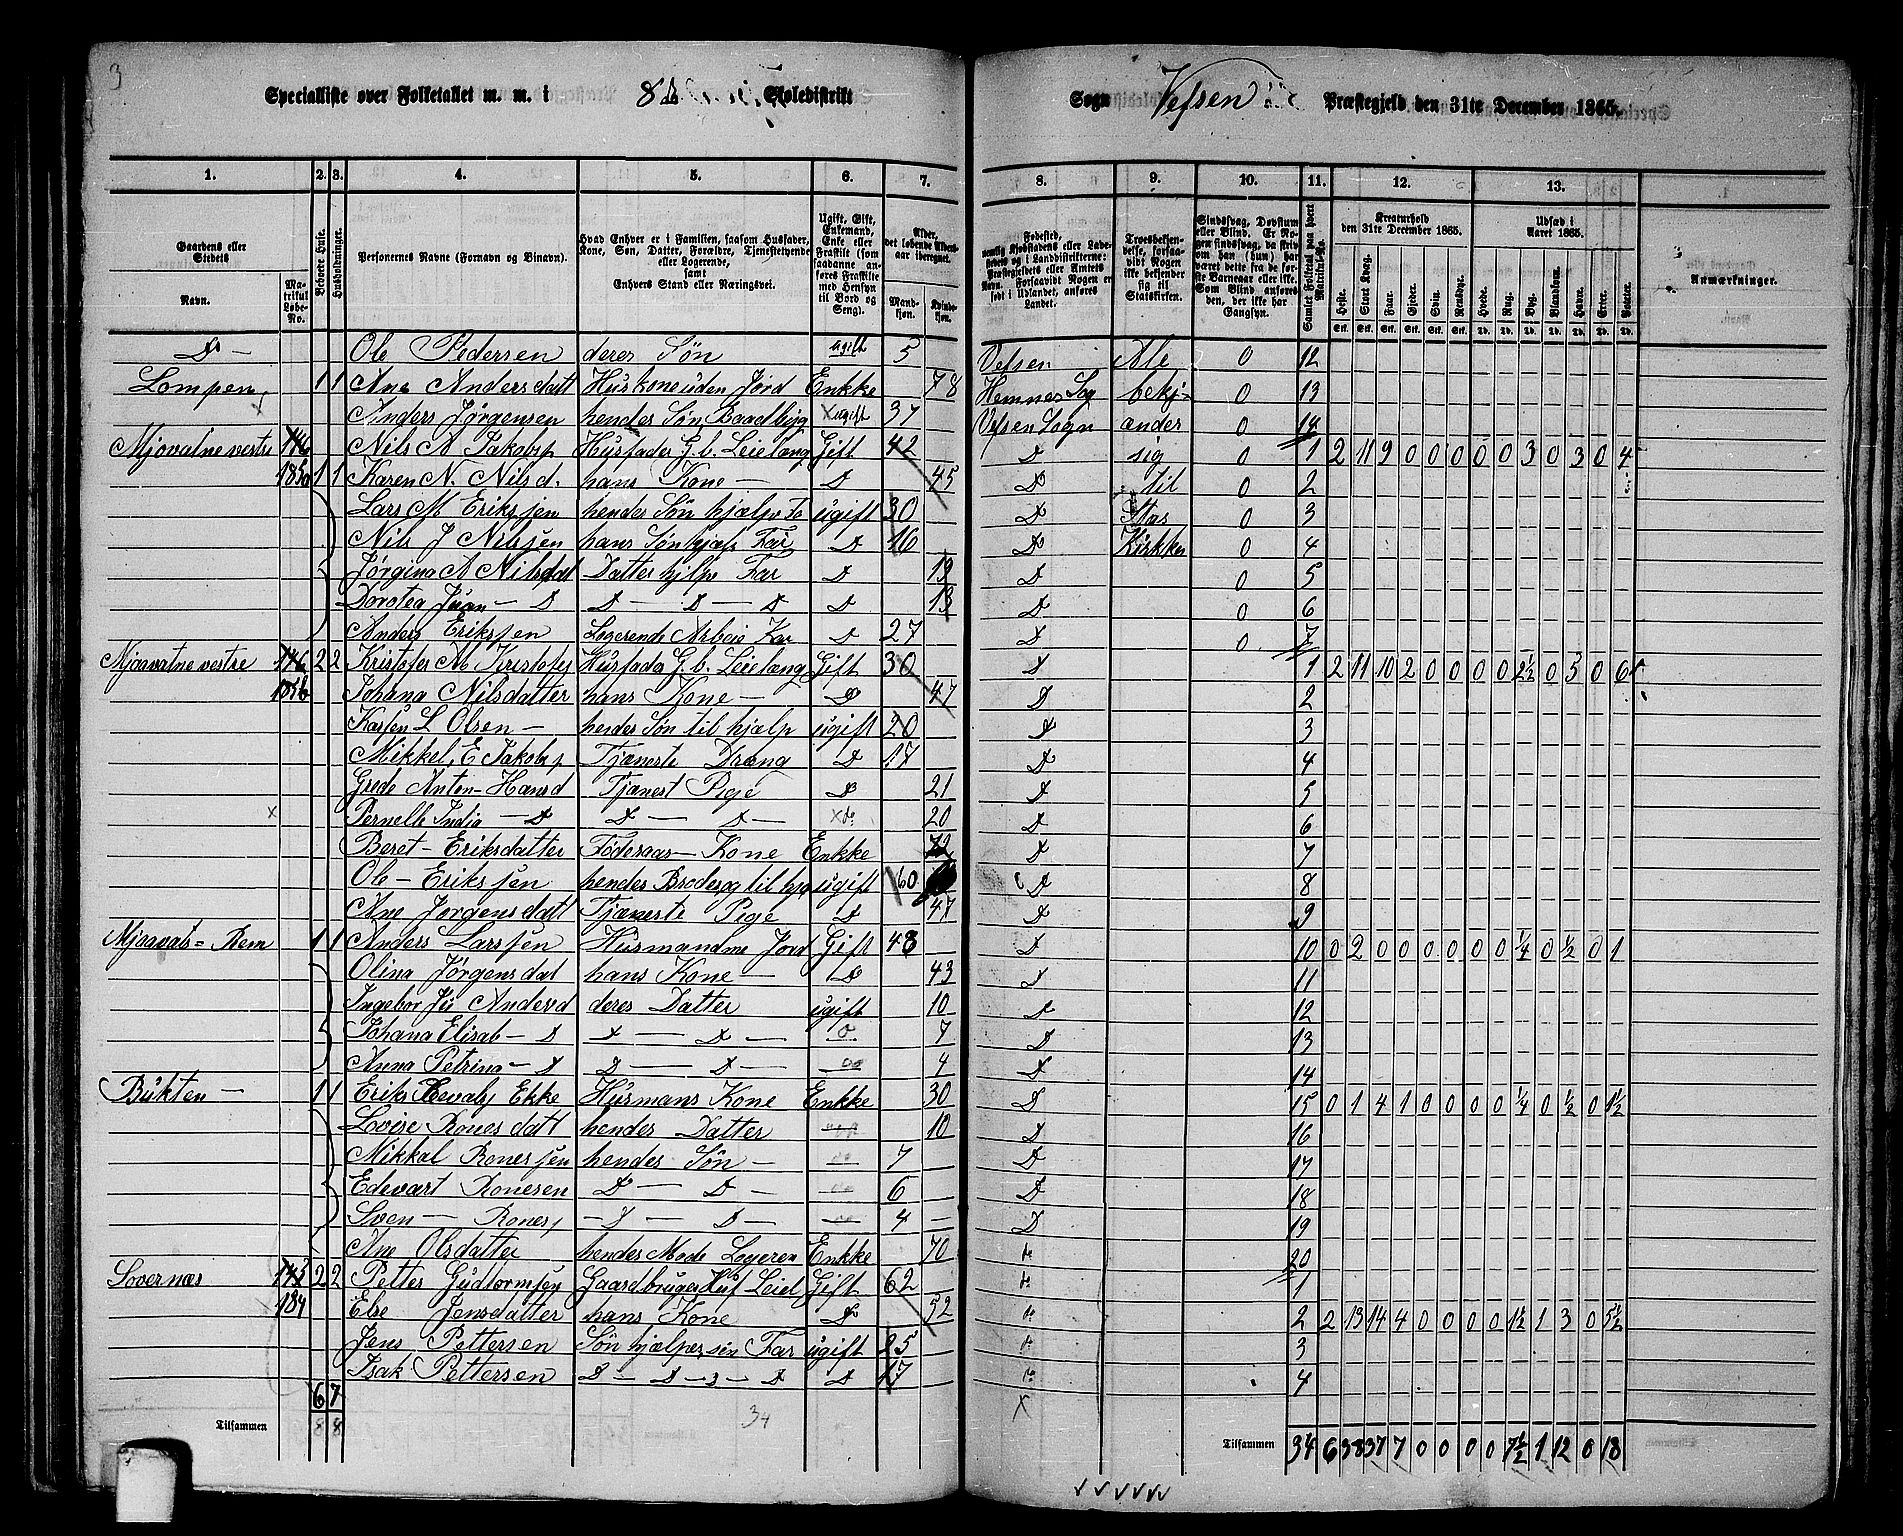 3
Specialliste over Folketallet m. m. i 8de Skoledistrikt Sogn Vefsen Præstegjeld den 31te December 1865.
1. 2. 3. 4. 5. 6. 7. 8. 9. 10. 11. 12. 13.
Gaardens eller Stedets Navn. Matrikul Løbe-No. Beboede Huse. Husholdninger. Personernes Navne (Fornavn og Binavn). Hvad Enhver er i Familien, saasom Husfader, Kone, Søn, Datter, Forældre, Tjenestetyende eller Logerende, samt Enhvers Stand eller Næringsvei. Ugift, Gift, Enkemand, Enke eller Fraskilte (som saadanne anføres Fraskilte med Hensyn til Bord og Seng). Alder, det løbende Alders-aar iberegnet. Mandkjøn. Kvindekjøn. Troesbekjendelse, forsaavidt Nogen ikke bekjender sig til Statskirken. Samlet Folketal paa hvert Matrikul-No. Kreaturhold den 31te December 1865. Heste. Stort Kvæg. Faar. Gjeder. Svin. Rensdyr. Udsæd i Aaret 1865. Hvede. Rug. Byg. Blandkorn. Havre. Erter. Poteter. Anmærkninger.
D — Ole Pedersen deres Søn ugift 5 Vefsen Ale 0 12
Lompen, 1 1 Ane Andersdatt Huskone uden Jord Enkke 78 Hemnes Sog bekj- 0 13
x Anders Jørgensen hendes Søn Baadbyg x ugift 37 Vefsen Sogn ænder 0 14
Mjovatne vestre 146 Nils A Jakobs Husfader G. b. Leielæng Gift 42 D sig 0 1 2 11 9 0 0 0 0 0 3 0 3 0 4
185a 1 1 Karen N. Nilsd. hans Kone — D 45 D til 0 2
Lars M Eriksen hendes Søn hjælpe Fa ugift 30 D Stas 0 3
Nils J Nilsen hans Søn hjælp Far D 16 D Kirkken 0 4
Jørgina A Nilsdat Datter hjelpe Far D 19 D 0 5
Dorotea Juan — D D — D — D D 13 D 0 6
Anders Eriksen Logerende Arbeie Kar D 27 D 0 7
Mjaavatne vestre 146 2 2 Kristofer M Kristofer Husfader G. b. Leielæng Gift 30 D 1 2 11 10 2 0 0 0 0 2½ 0 3 0 6
185b Johana Nilsdatter hans Kone — D 47 D 2
Karsen L Olsen — hendes Søn til hjælp ugift 20 D 3
Mikkel E Jakobs Tjæneste Dræng D 17 D 4
Grede Anten-Hansd Tjænest Pige D 21 D 5
x Pernelle India — D D — D — x do 20 D 6
Beret — Eriksdatter Föderaas — Kone Enkke 72 D 7
Ole — Eriksen hendes Broder og til hje ugift 60 D 8
Ane Jørgensdatt Tjæneste Pige D 47 D 9
Mjaavats = Rem 1 1 Anders Larssen Husmand me Jord Gift 48 D 10 0 2 0 0 0 0 0 0 ¼ 0 ½ 0 1
Olina Jørgensdat hans Kone — D 43 D 11
Ingebor Ju Andersd deres Datter ugift 10 D 12
Johana Elisab — D D — D — 7 D 13
Anna Petrina — D D — D — 4 D 14
Bukten — 1 1 Husmans Kone Enkke 30 D 15 0 1 4 1 0 0 0 0 ¼ 0 ½ 0 1½
Lovise Ronesdatt hendes Datter 10 D 16
Mikkal Ronessen hendes Søn — 7 D 17
Edevart Ronesen D — D — 6 D 18
Sven — Rones — D — D — 4 D 19
Ane Olsdatter hendes Mode Logeren Enkke 70 20
Sovernæs 147 2 2 Petter Gudtormsen Gaardbruger Husf Leiel Gift 62 1
184 Else Jensdatter hans Kone D 52 2 2 13 14 4 0 0 0 0 1½ 1 3 0 5½
Jens Pettersen Søn hjælper sin Far ugift 25 3
Isak Pettersen D — D — D D 17 4
6 7
Tilsammen 8 8 34 Tilsammen 34 6 38 37 7 0 0 0 0 7½ 1 12 0 18